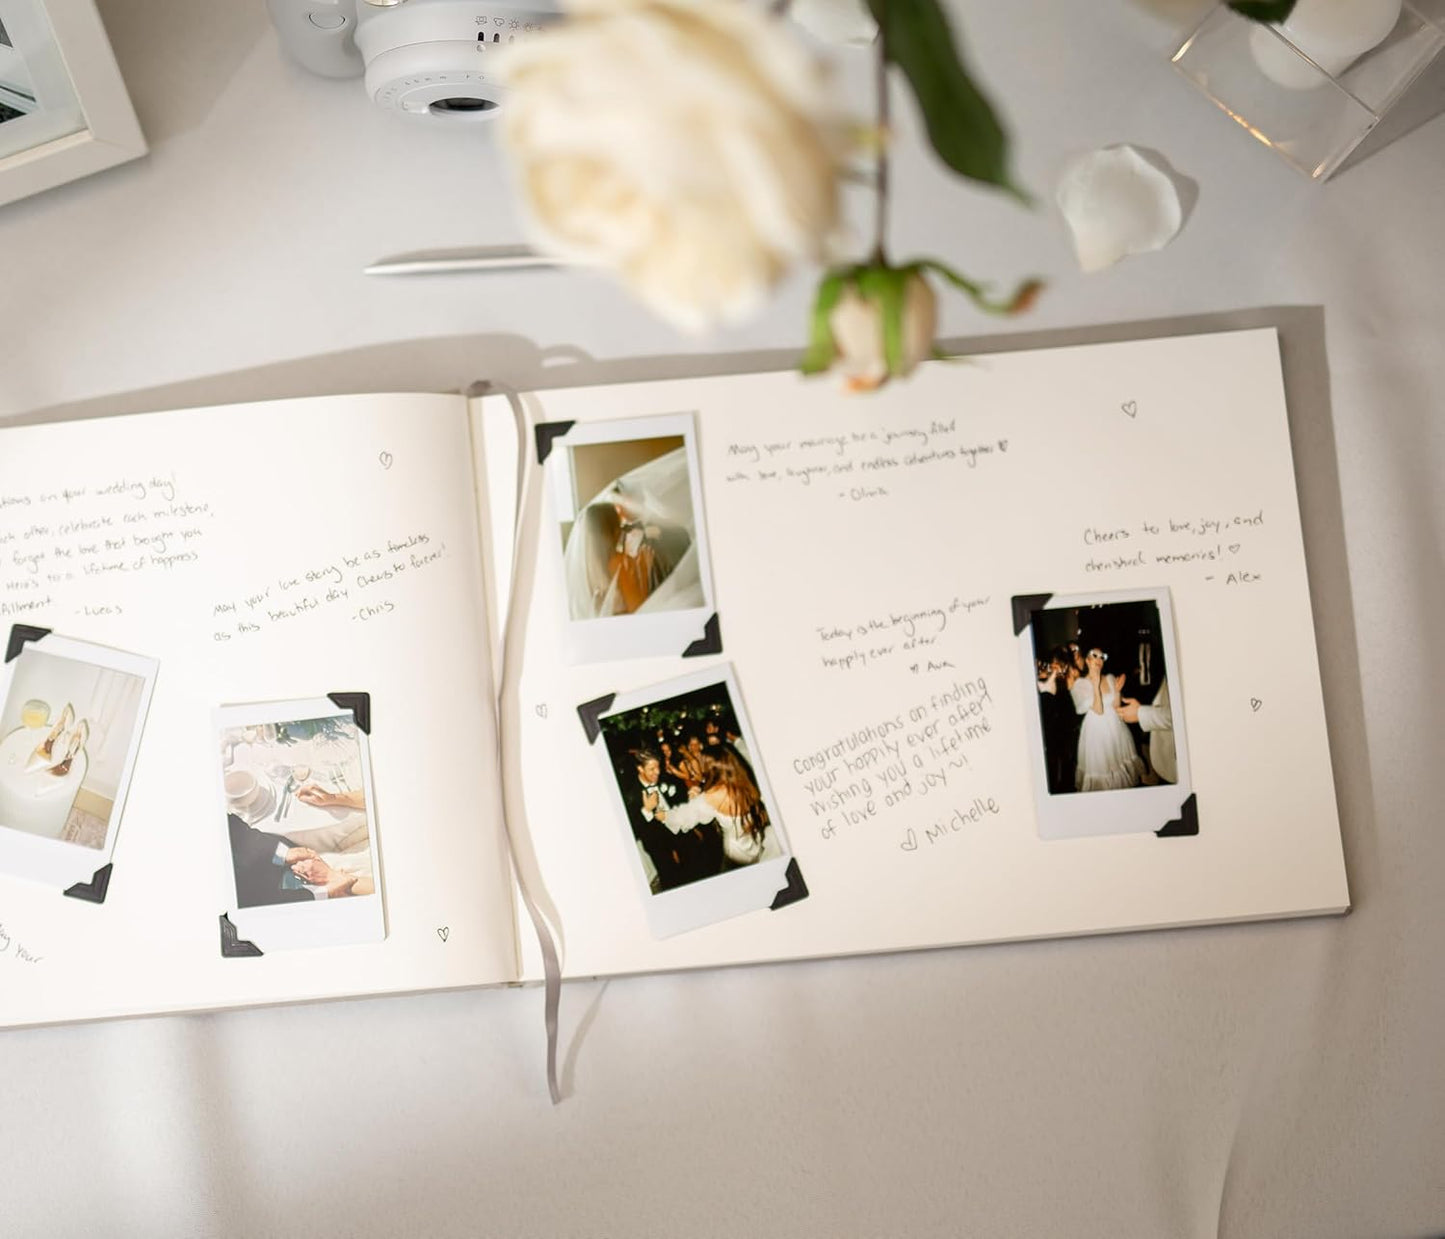 on your wedding day!
each other, celebrate each milestone,
forget the love that brought you
Here's to a lifetime of happiness
Allment.
-Lucas
May your love story be as timeless
as this beautiful day. Cheers to forever!
-Chris
your
May your marriage be a journey filled
with love, laughter, and endless adventures together
- Olivia
Cheers to love, joy, and
cherished memories!
- Alex
Today is the beginning of your
happily ever after
Ava
Congratulations on finding
your happily ever after!
Wishing you a lifetime
of love and joy
Michelle